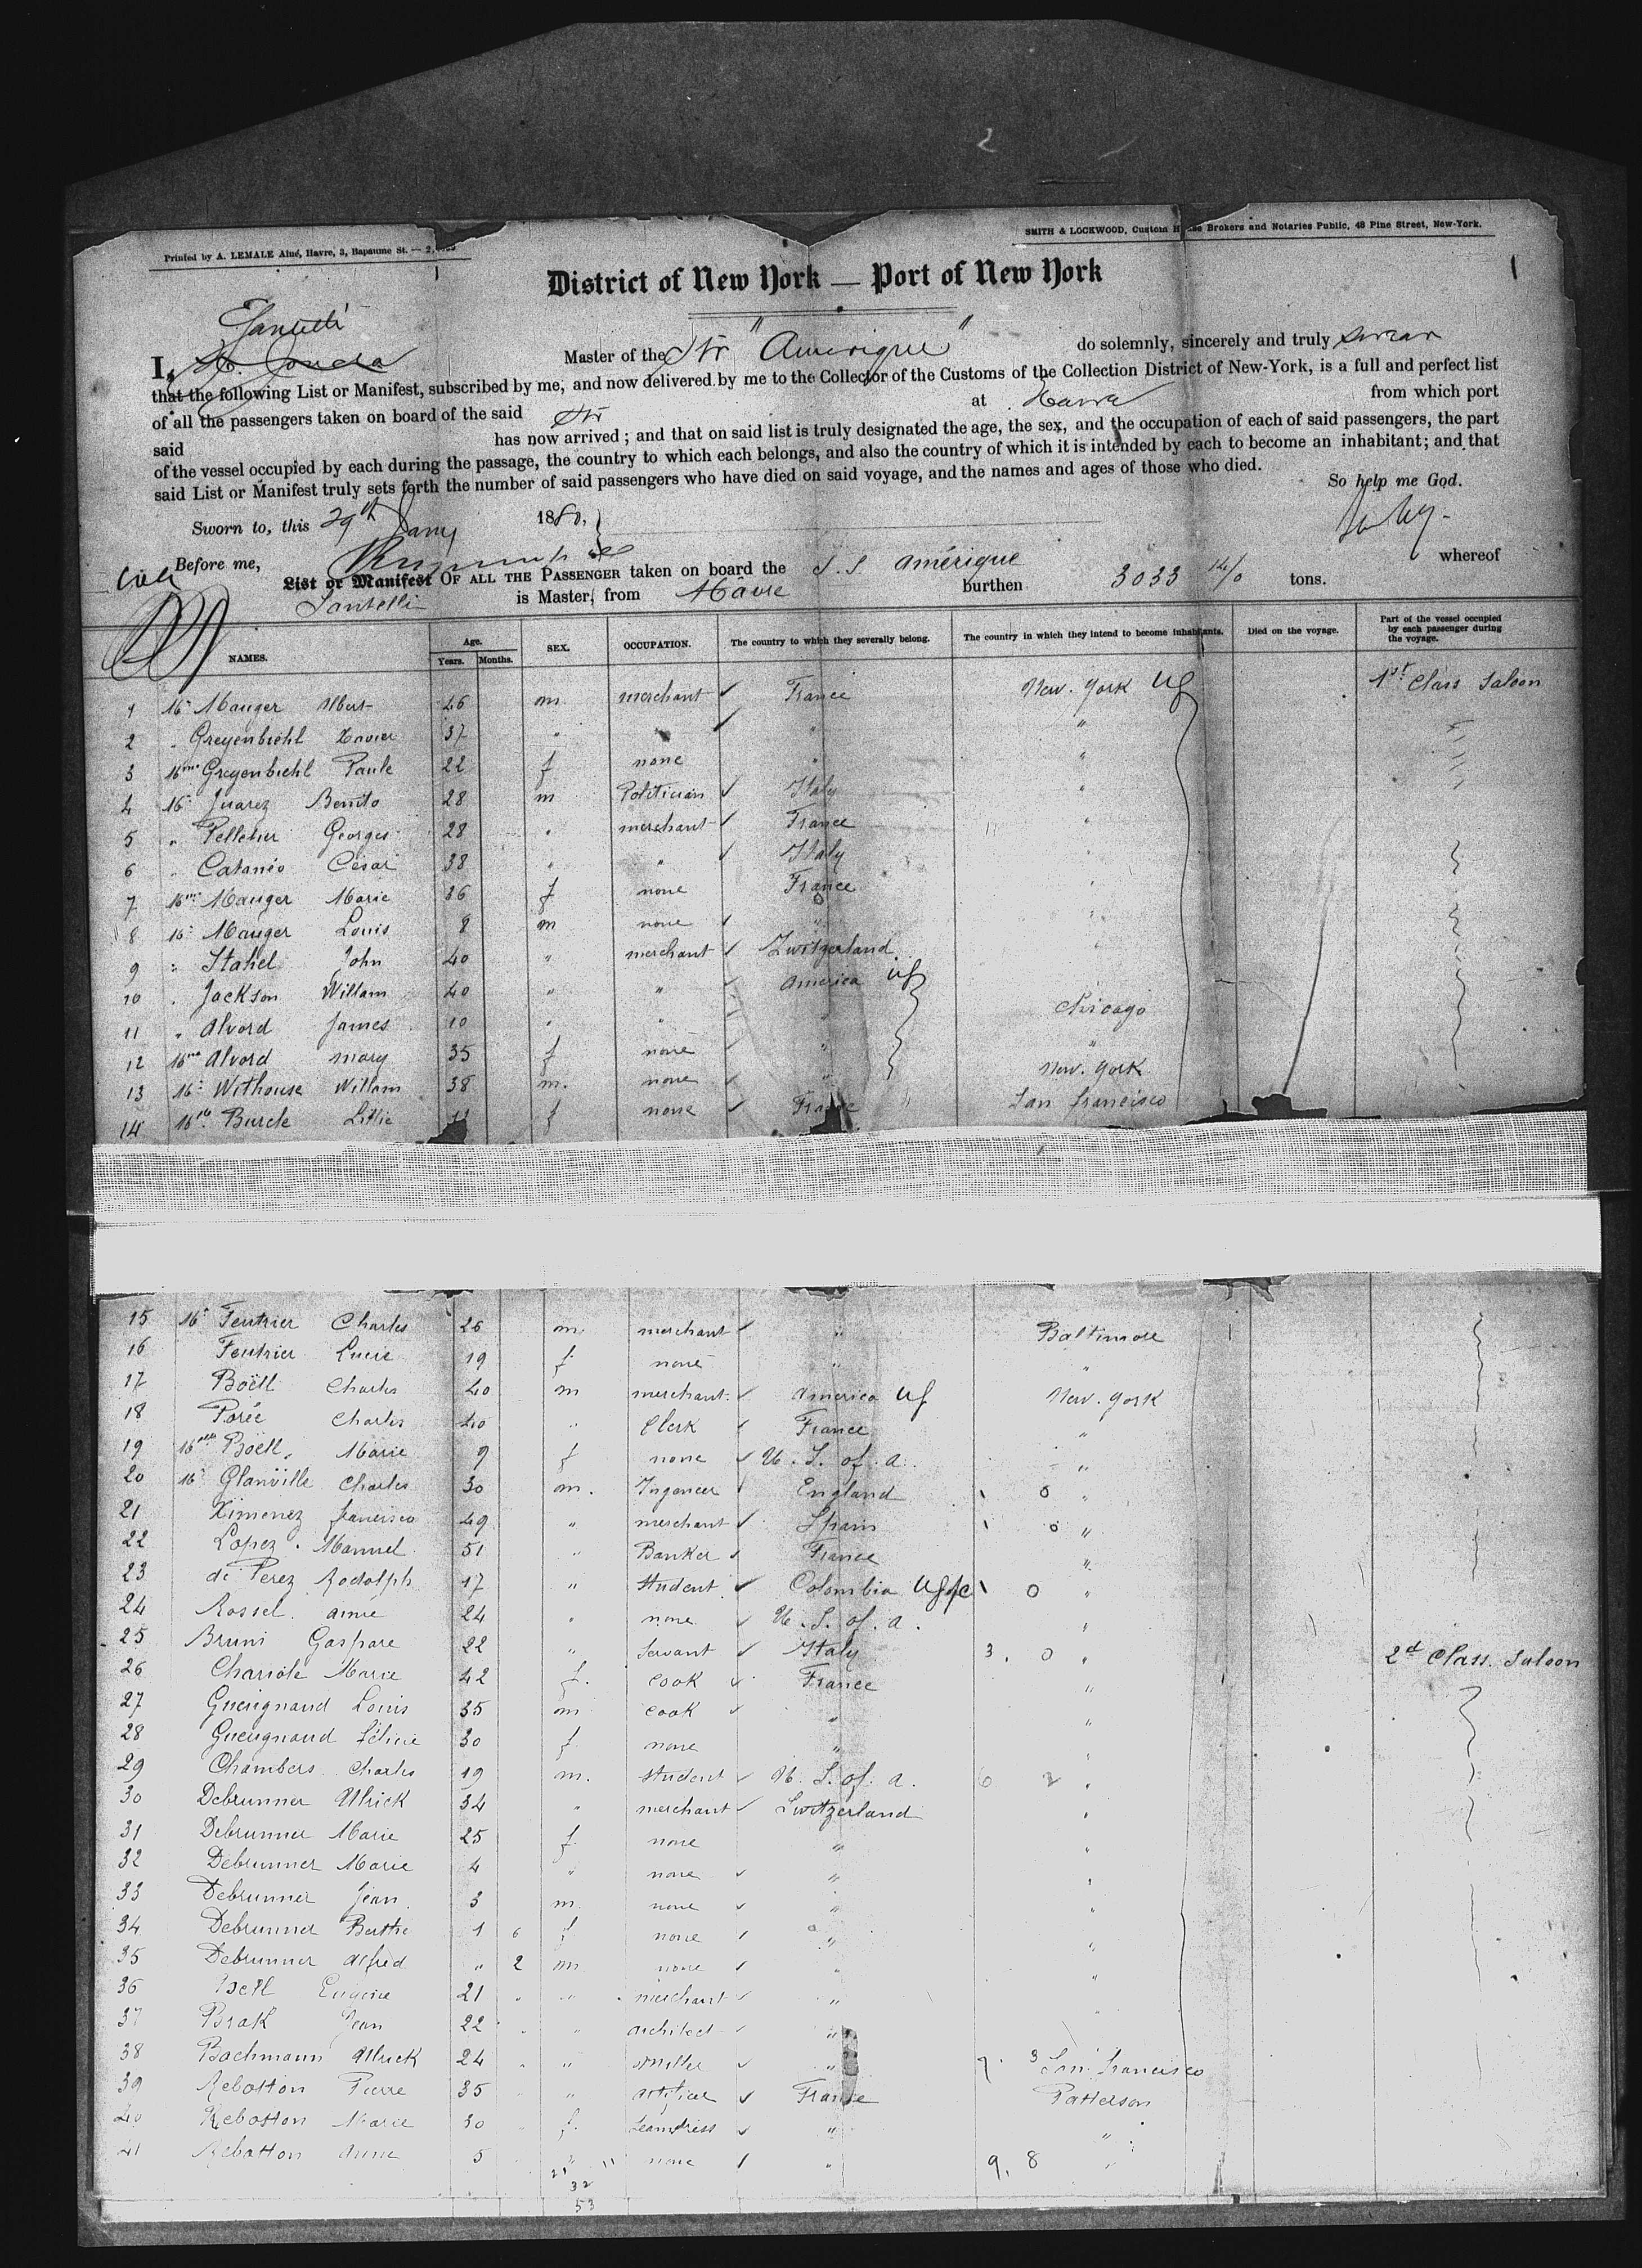 2
Printed by A. LEMALE Aîné, Havre, 3, Bapaume St. —
SMITH & LOCKWOOD, Custom House Brokers and Notaries Public, 48 Pine Street, New-York.
1
District of New York — Port of New York
I, Master of the Str "Amerique" do solemnly, sincerely and truly swear
that the following List or Manifest, subscribed by me, and now delivered by me to the Collector of the Customs of the Collection District of New-York, is a full and perfect list
of all the passengers taken on board of the said Str at Havre from which port
said has now arrived ; and that on said list is truly designated the age, the sex, and the occupation of each of said passengers, the part
of the vessel occupied by each during the passage, the country to which each belongs, and also the country of which it is intended by each to become an inhabitant; and that
said List or Manifest truly sets forth the number of said passengers who have died on said voyage, and the names and ages of those who died.
So help me God.
Sworn to, this 29th Jany 1880,
Before me,
List or Manifest OF ALL THE PASSENGER taken on board the S.S Amérique whereof
Santelli is Master, from Havre burthen 3033 tons.
NAMES. Age. Years. Months. SEX. OCCUPATION. The country to which they severally belong. The country in which they intend to become inhabitants. Died on the voyage. Part of the vessel occupied by each passenger during the voyage.
1 Mr Mauger Albert 46 m merchant France New. York 1st Class Saloon
2 " Greyenbiehl Xavier 37 " " " "
3 Mme Greyenbiehl Paule 22 f none " "
4 Mr Juarez Benito 28 m Politician Italy "
5 " Pelletier Georges 28 " merchant France "
6 " Catanéo César 38 " " Italy "
7 Mme Mauger Marie 36 f none France "
8 Mr Mauger Louis 8 m none " "
9 " Stahel John 40 " merchant Zwitzerland "
10 " Jackson Willam 40 " " America
11 " Alvord James 10 " " " Chicago
12 Mme Alvord mary 35 f none " "
13 Mr Withouse Willam 38 m. none " New. York
14 Mlle Burcle Lillie f none France San francisco
15 Mr Feutrier Charles 26 m merchant " Baltimore
16 Feutrier Lucie 19 f none " "
17 Boëll Charles 40 m merchant America New. York
18 Porée Charles 40 " Clerk France "
19 Mlle Boëll Marie 9 f none U. S. of. a. "
20 Mr Glanville Charles 30 m. Ingeneer England "
21 Ximenez francisco 49 " merchant Spain "
22 Lopez Manuel 51 " Banker France "
23 de Perez Rodolph 17 " student Colombia "
24 Rossel aimé 24 " none U. S. of. a. "
25 Bruni Gaspare 22 " Servant Italy " 2d Class. Saloon
26 Chariole Marie 42 f. cook France "
27 Gueugnaud Louis 35 m cook " "
28 Gueugnaud félicie 30 f. none " "
29 Chambers Charles 19 m. student U. S. of. a. "
30 Debrunner Ulrick 34 " merchant Switzerland "
31 Debrunner Marie 25 f. none " "
32 Debrunner Marie 4 " none " "
33 Debrunner Jean 3 m. none " "
34 Debrunner Berthe 1 6 f none " "
35 Debrunner Alfred " 2 m none " "
36 Eugène 21 " merchant " "
37 Brak Jean 22 " architect " "
38 Bachmann Ulrick 24 " " San francisco
39 Rebotton Pierre 35 " artificer France Patterson
40 Rebotton Marie 30 f. Seamtress " "
41 Rebotton Anne 5 " none " "
9, 8
32
53